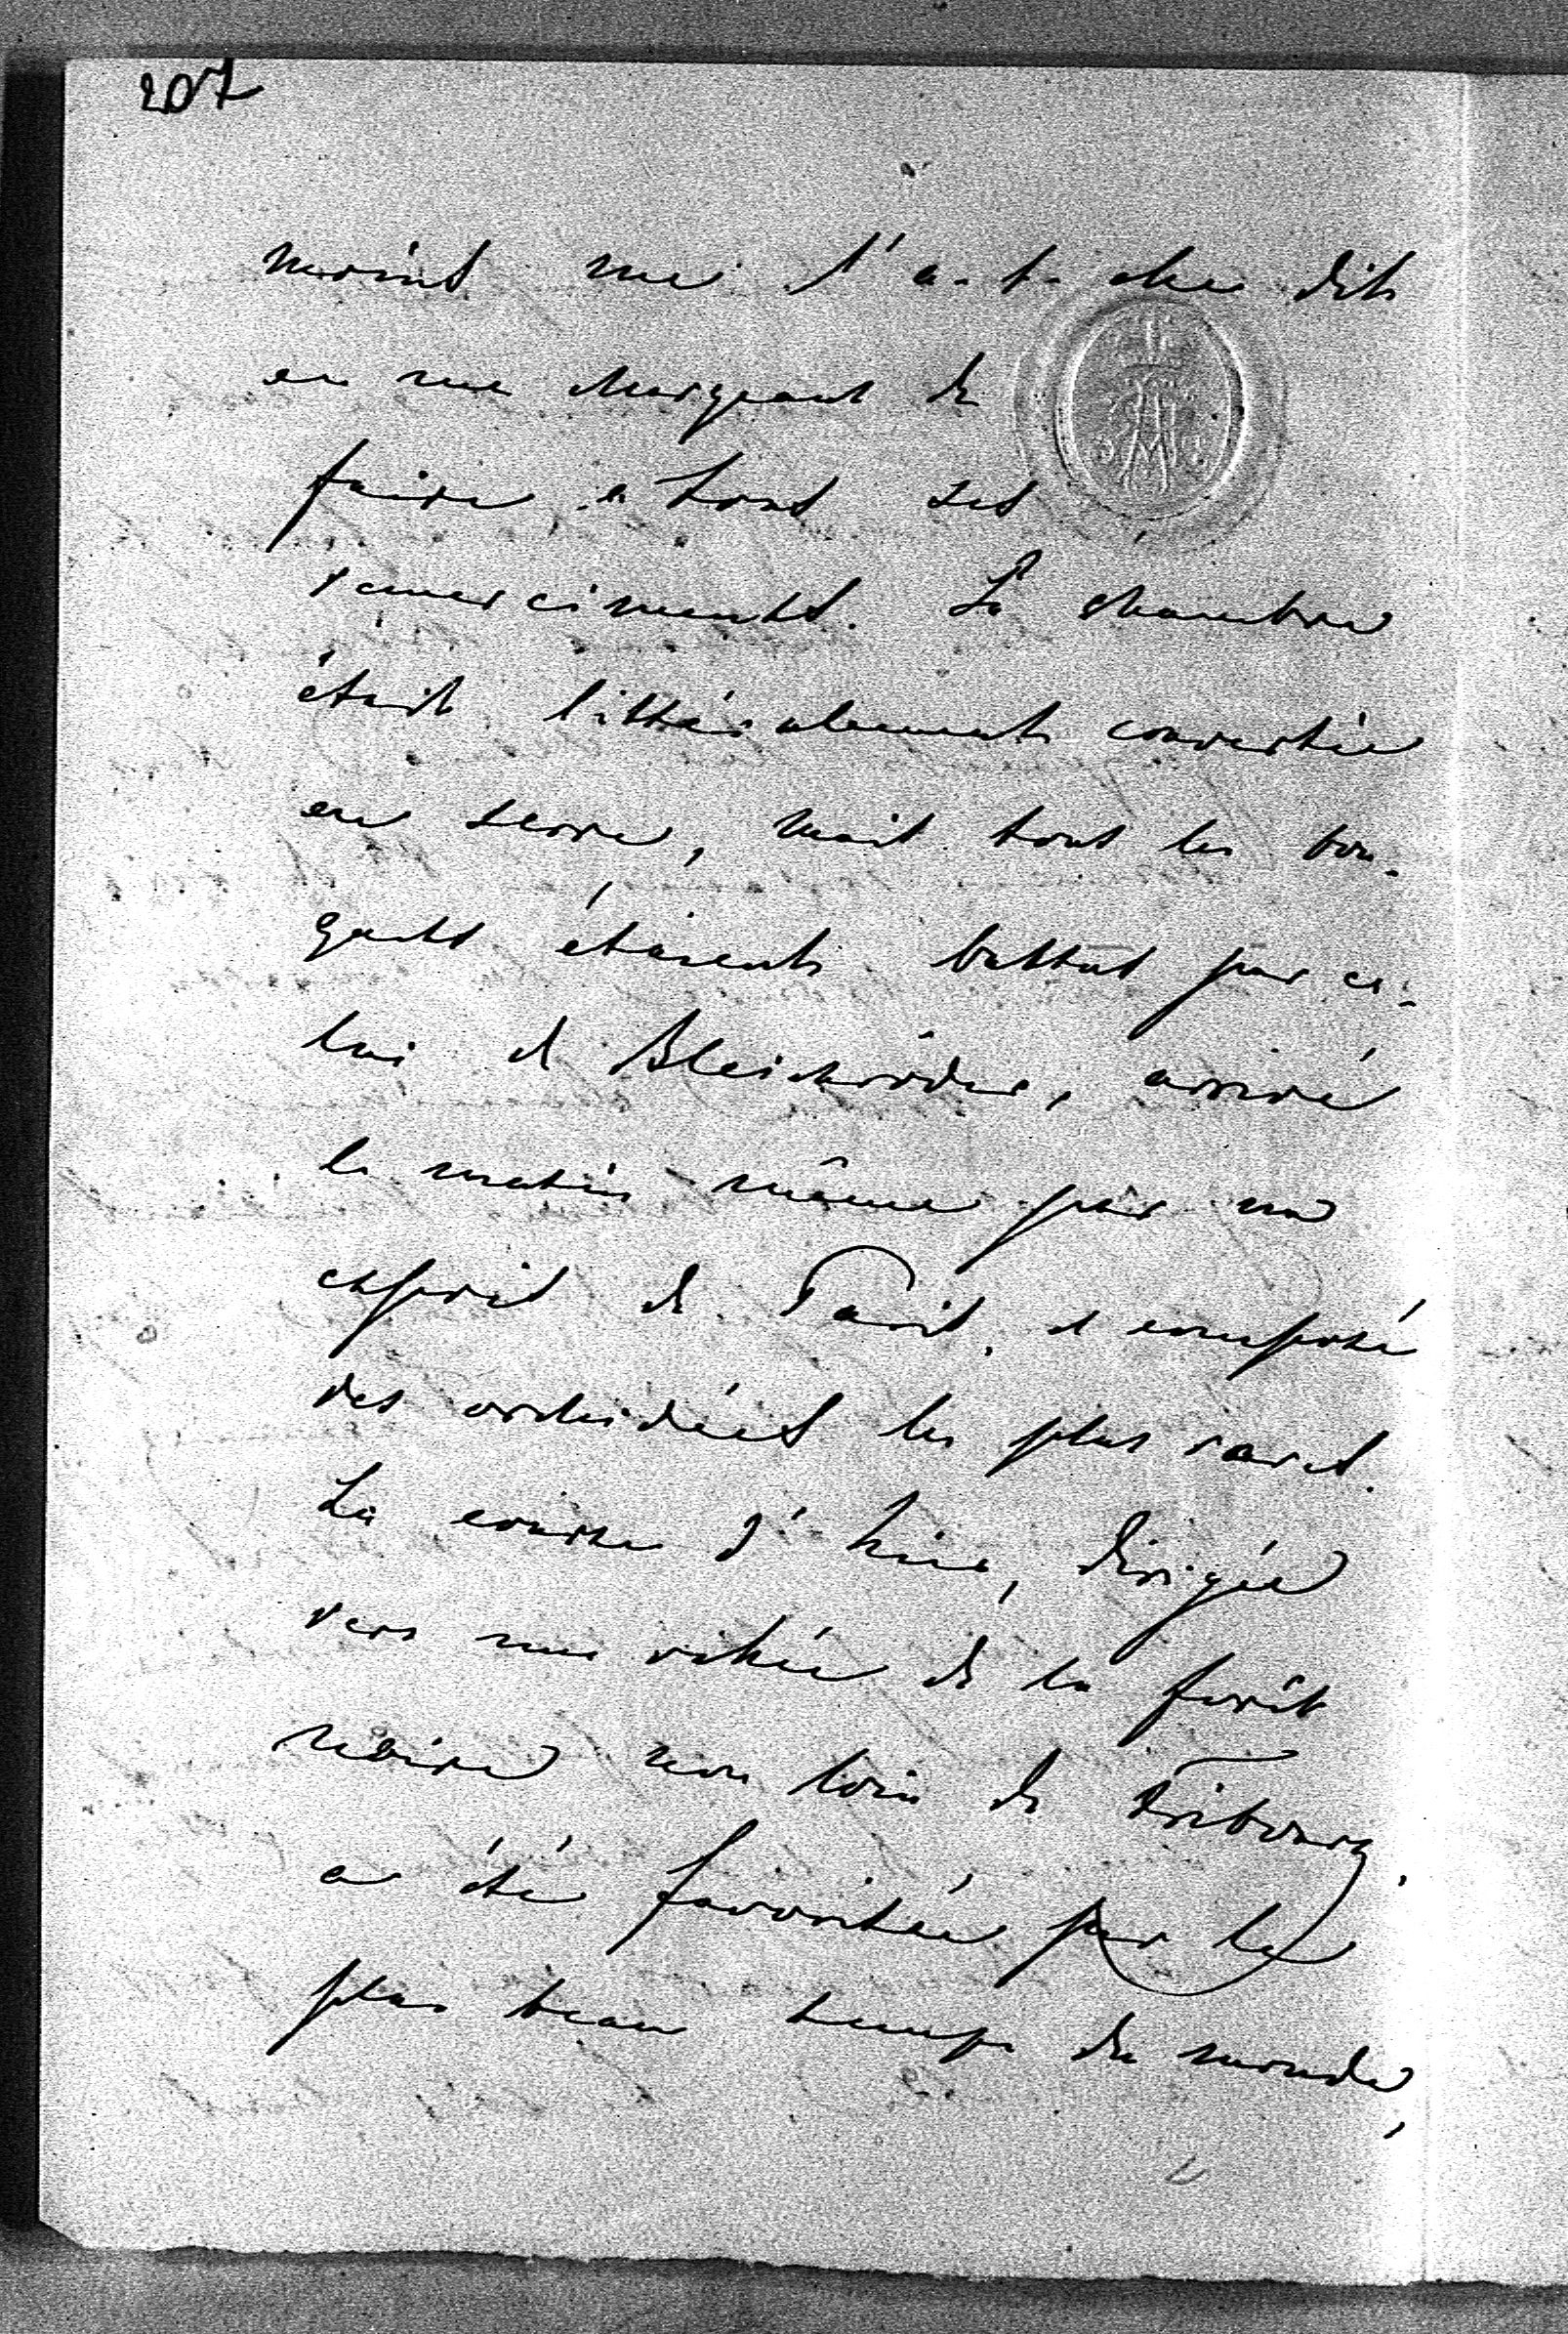 207
moins me l'a-t-elle dit
en me chargeant de
faire à tous ses
remerciments. La chambre
était littéralement convertie
en serre, mais tous les bou-
quets étaient battus par ce-
lui de Bleichröder, arrivé
le matin même par un
exprès de Paris, et composé
des orchidées les plus rares.
La course d'hier, dirigée
vers une vallée de la forêt
noire non loin de Fribourg,
a été favorisée par le
plus beau temps du monde,